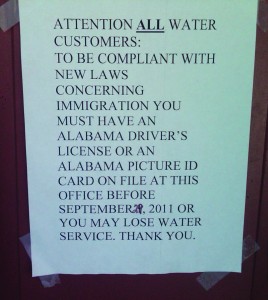 ATTENTION ALL WATER
CUSTOMERS:
TO BE COMPLIANT WITH
NEW LAWS
CONCERNING
IMMIGRATION YOU
MUST HAVE AN
ALABAMA DRIVER'S
LICENSE OR AN
ALABAMA PICTURE ID
CARD ON FILE AT THIS
OFFICE BEFORE
SEPTEMBER , 2011 OR
YOU MAY LOSE WATER
SERVICE. THANK YOU.